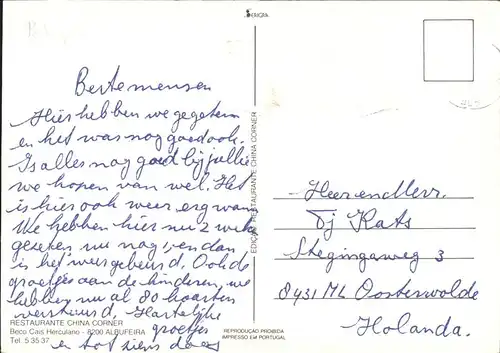 SERIGRA
Beste mensen
Hier hebben we gegeten
en het was nog goed ook.
Is alles nog goed bij jullie
we hopen van wel. Het
is hier ook weer erg warm
We hebben hier nu 2 weke
gezeten nu nog 1, en dan
is het weer gebeurd. Ook de
groetjes aan de kinderen, we
hebben nu al 80 kaarten
verstuurd. Hartelijke
groetjes
en tot ziens
RESTAURANTE CHINA CORNER
Beco Cais Herculano - 8200 ALBUFEIRA
Tel. 5 35 37
EDIÇÃO RESTAURANTE CHINA CORNER
REPRODUÇÃO PROIBIDA
IMPRESSO EM PORTUGAL
Heer en Mevr.
Dj Kats
Stegingaweg 3
8431 ML Oosterwolde
Holanda.